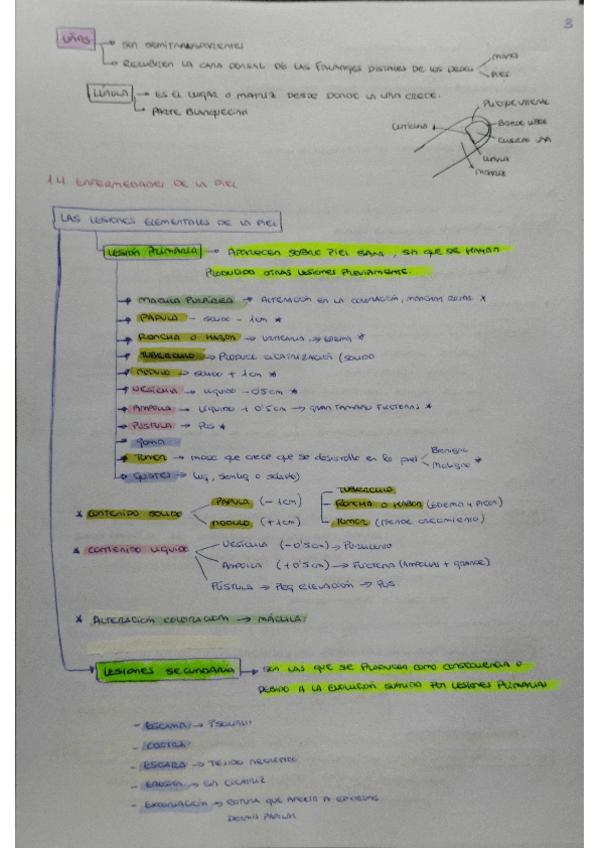 3
UÑAS → SON SEMITRANSPARENTES
→ RECUBREN LA CARA DORSAL DE LAS FALANGES DISTALES DE LOS DEDOS
MANOS
PIES
LÚNULA → ES EL LUGAR O MATRIZ DESDE DONDE LA UÑA CRECE.
→ PARTE BLANQUECINA
PLIEGUE
CUTÍCULA
BORDE LIBRE
CUERPO UÑA
LUNULA
MATRIZ
1.4 ENFERMEDADES DE LA PIEL
LAS LESIONES ELEMENTALES DE LA PIEL
LESIÓN PRIMARIA → APARECEN SOBRE PIEL SANA, SIN QUE SE HAYAN
PRODUCIDO OTRAS LESIONES PREVIAMENTE.
→ MACULA → ALTERACIÓN EN LA COLORACIÓN, MANCHAS ROJAS *
→ PÁPULA - SÓLIDO - 1cm *
→ RONCHA O HABÓN → URTICARIA → EDEMA *
→ TUBÉRCULO → PRODUCE CICATRIZACIÓN (SOLIDO
→ NÓDULO → SOLIDO + 1cm *
→ VESÍCULA → LÍQUIDO - 0'5cm *
→ AMPOLLA → LÍQUIDO + 0'5cm → GRAN TAMAÑO FLICTENAS *
→ PÚSTULA → PUS *
→ goma
→ TUMOR → masa que crece que se desarrolla en la piel
Benigno
Maligno *
→ QUISTES → (liq, semiliq o sólido)
* CONTENIDO SÓLIDO
PÁPULA (-1cm)
NODULO (+1cm)
TUBERCULO
RONCHA O HABON (EDEMA Y PICOR)
TUMOR (TIENDE CRECIMIENTO)
* CONTENIDO LIQUIDO
VESÍCULA (-0'5cm) → PURULENTO
AMPOLLA (+0'5cm) → FLICTENA (AMPOLLAS + GRANDE)
PÚSTULA → PEQ ELEVACIÓN → PUS.
* ALTERACIÓN COLORACIÓN → MÁCULA
LESIONES SECUNDARIA → SON LAS QUE SE PRODUCEN COMO CONSECUENCIA O
DEBIDO A LA EVOLUCIÓN SUFRIDO POR LESIONES PRIMARIAS
- ESCAMA →
- COSTRA
- ESCARA → TEJIDO NEGRUZCO
- EROSIÓN → SIN CICATRIZ
- EXCORIACIÓN → ROTURA QUE AFECTA A EPIDERMIS
DERMIS PAPILAR